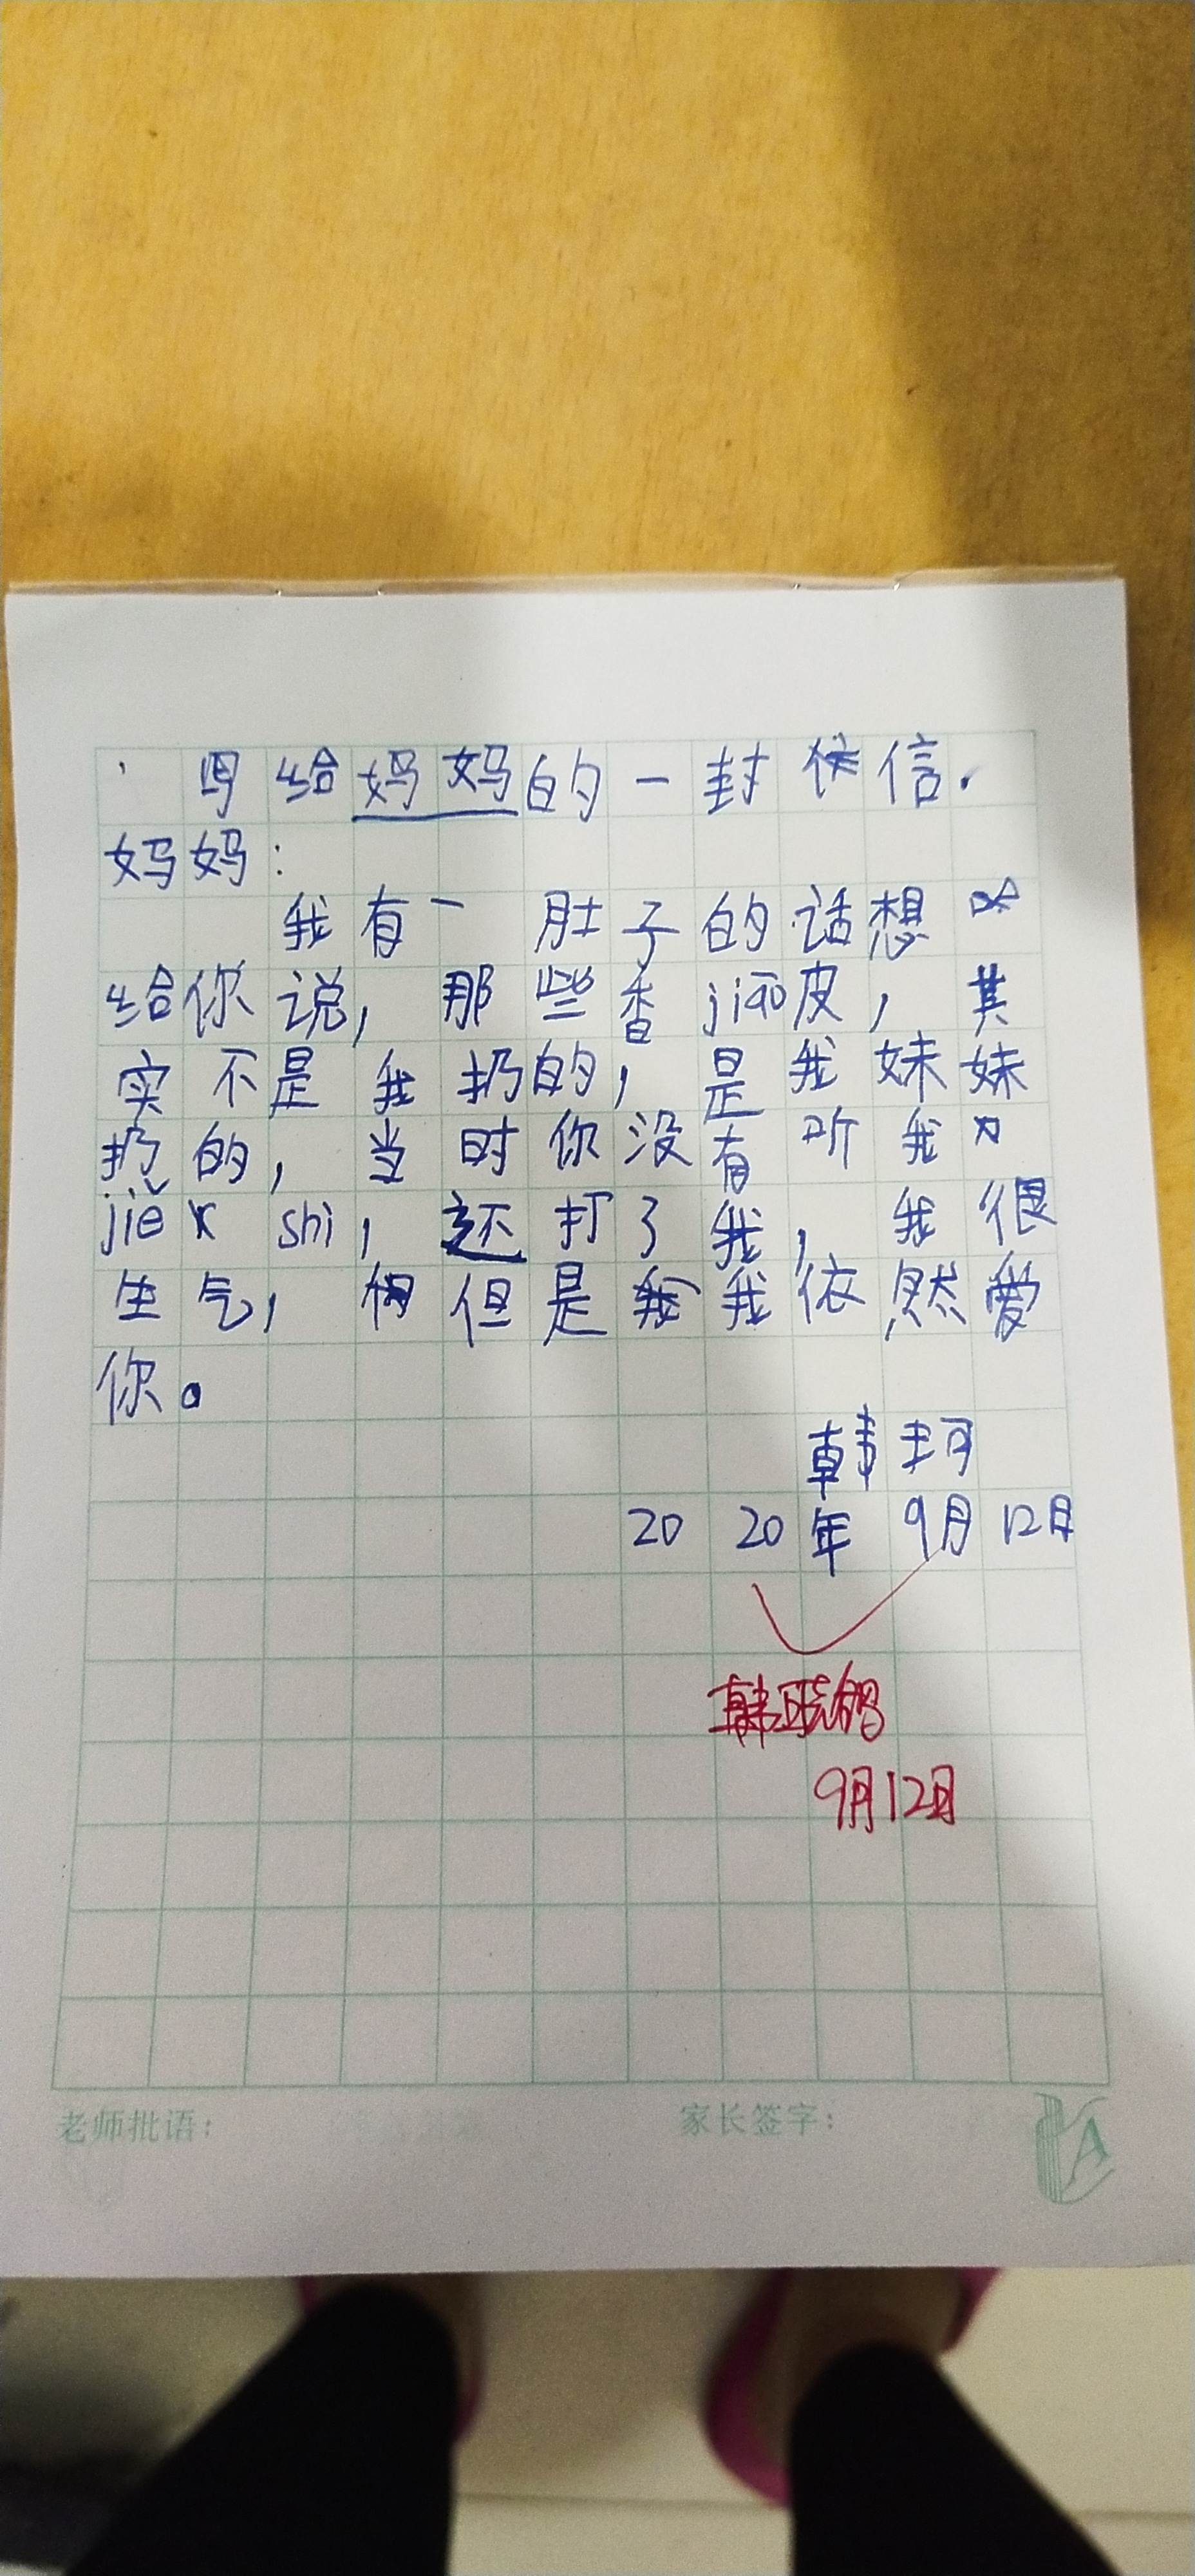 写给妈妈的一封信.
妈妈:
我有一肚子的话想
给你说,那些香jiāo皮,其
实不是我扔的,是我妹妹
扔的,当时你没有听我
jiě shì,还打了我,我很
生气,但是我依然爱
你。
韩珂
2020年9月12日
9月12日
老师批语:
家长签字: